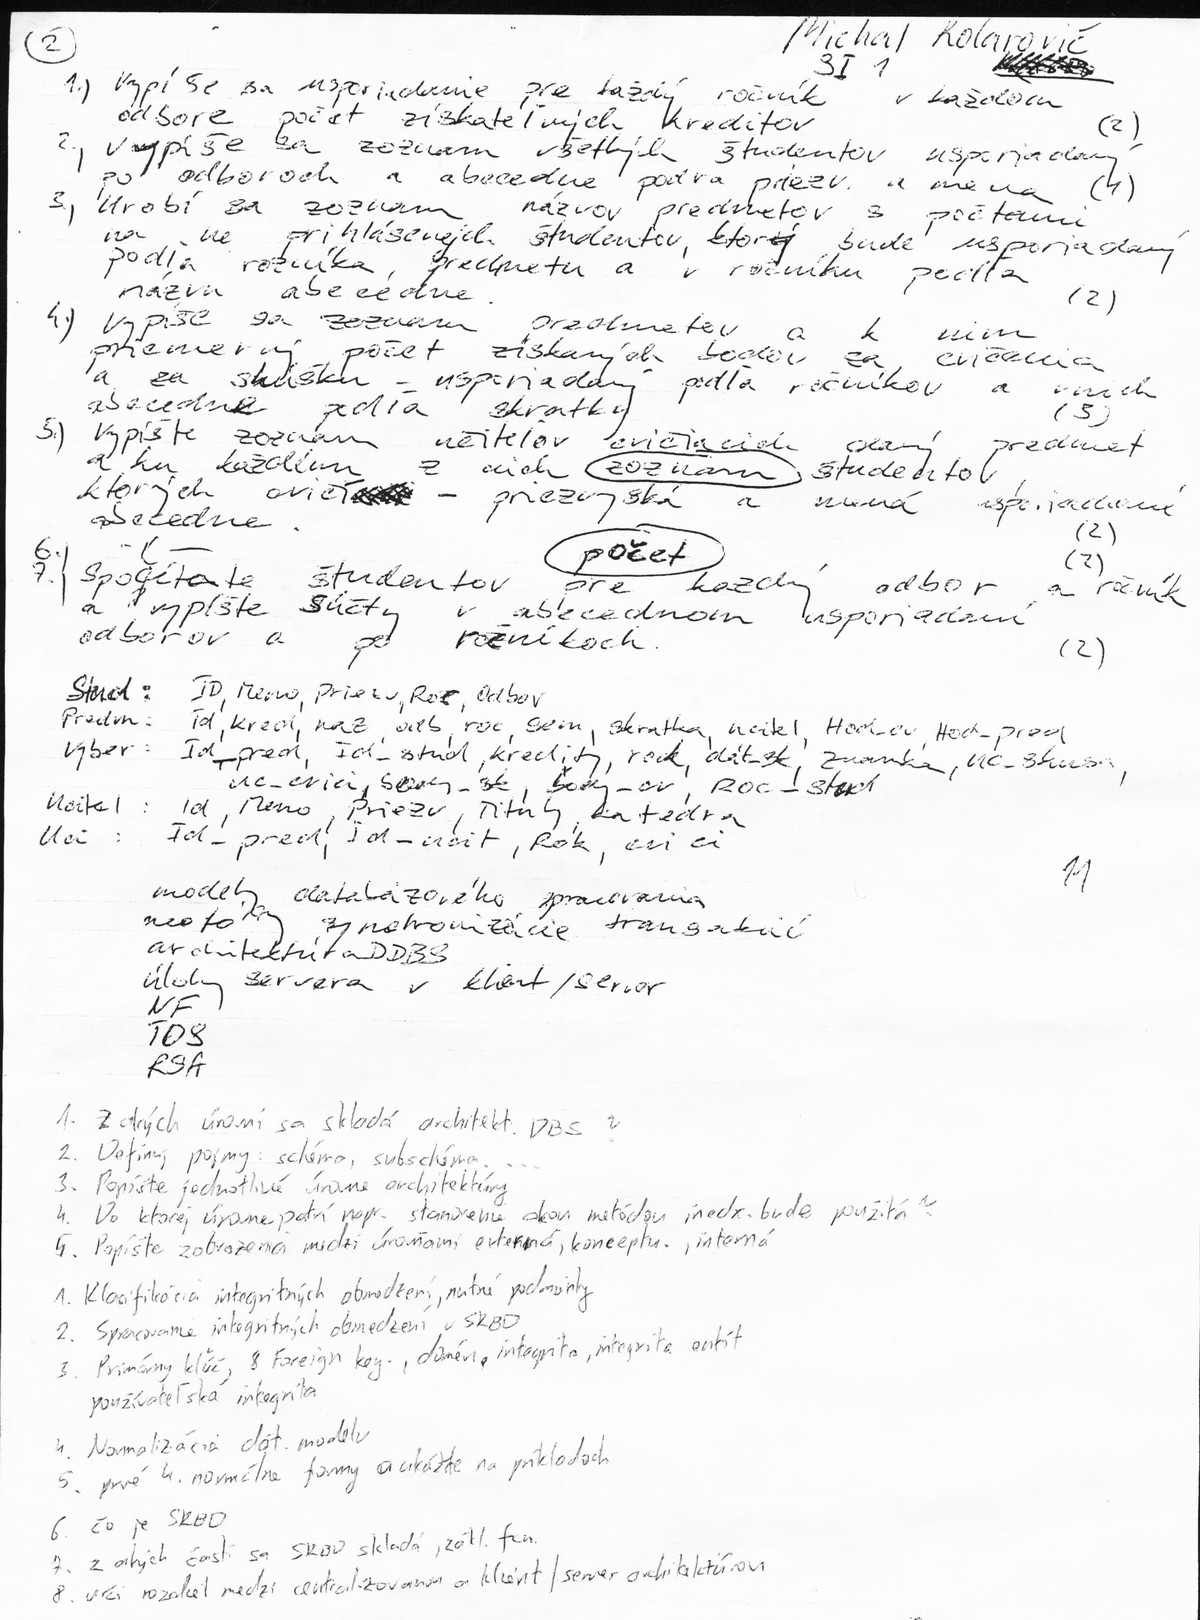 2
Michal Kolarovič
3I1
1.) Vypíše sa usporiadanie pre každý ročník v každom
odbore počet získateľných kreditov (2)
2., Vypíše sa zoznam všetkých študentov usporiadaný
po odboroch a abecedne podľa priezv. a mena (1)
3., Urobí sa zoznam názvov predmetov s počtami
na ne prihlásených študentov, ktorý bude usporiadaný
podľa ročníka, predmetu a v ročníku podľa
názvu abecedne. (2)
4.) Vypíše sa zoznam predmetov a k nim
priemerný počet získaných bodov za cvičenia
a za skúšku - usporiadaný podľa ročníkov a v nich
abecedne podľa skratky (3)
5.) Vypíšte zoznam učiteľov cvičiacich daný predmet
a ku každému z nich zoznam študentov,
ktorých cvičí - priezvyská a mená usporiadané
abecedne. (2)
6.) -"- počet (2)
7.) Spočítate študentov pre každý odbor a ročník
a vypíšte súčty v abecednom usporiadaní
odborov a po ročníkoch. (2)
Stud: ID, Meno, Priezv, Roc, Odbor
Predm: id, kred, naz, odb, roc, sem, skratka, ucitel, Hod_cv, Hod_pred
Vyber: Id_pred, Id_stud, kredity, rok, dát_sk, známka, uc_skusa,
uc_cvici, Body_sk, body_cv, Roc_stud
Ucitel: Id, Meno, Priezv, Tituly, katedra
Uci: Id_pred, Id_ucit, Rok, cvici
11
modely databázového spracovania
metódy synchronizácie transakcií
architektúra DDBS
úlohy servera v klient/server
NF
IOS
RSA
1. Z akých úrovní sa skladá architekt. DBS?
2. Definuj pojmy: schéma, subschéma.....
3. Popíšte jednotlivé úrovne architektúry
4. Do ktorej úrovne patrí napr. stanovenie akou metódou inedx. bude použitá?
5. Popíšte zobrazenia medzi úrovňami externá, konceptu., interná
1. Klasifikácia integritných obmedzení, nutné podmienky
2. Spracovanie integritných obmedzení v SRBD
3. Primárny kľúč, 8 Foreign key., domén. integrita, integrita entít
používateľská integrita
4. Normalizácia dát. modelu
5. prvé 4. normálne formy a ukážte na príkladoch
6. čo je SRBD
7. z akých častí sa SRBD skladá, zákl. fcn.
8. urči rozdiel medzi centralizovanou a klient/server architektúrou